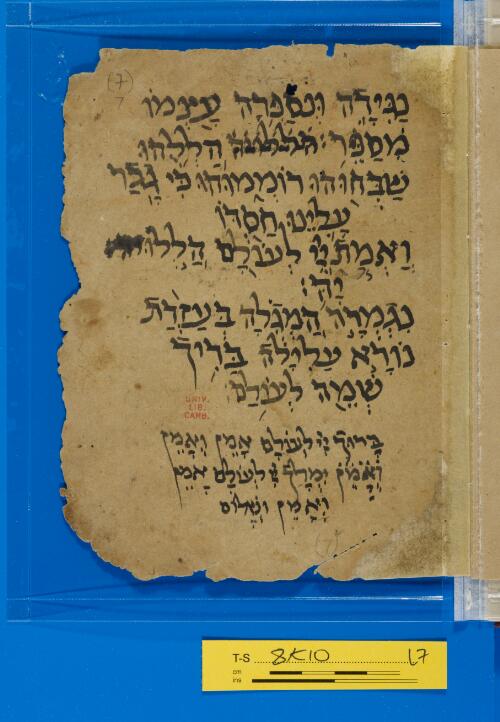 (7)
7
נַגִידָה וּנְסַפְּרָה עָצְמוּ
מִסַפֵּר: הַלְלוּהוּ
שַׁבְּחוּהוּ רוֹמְמוּהוּ כִּי גָבַר
עָלֵינוּ חַסְדוֹ
וֶאֱמֶת יְיָ לְעוֹלָם הַלְלוּ
יָהּ:
נִגְמְרָה הַמְגִלָה בְעֶזְרַת
נוֹרָא עֲלִילָה בָּרוּךְ
שְׁמֵהּ לְעוֹלָם
UNIV.
LIB.
CAMB.
בָּרוּךְ יְיָ לְעוֹלָם אָמֵן וְאָמֵן
וְאָמֵן יִמְלֹךְ יְיָ לְעוֹלָם אָמֵן
וְאָמֵן וְשָׁלוֹם
(7)
T-S 8K10 L7
cm
ins